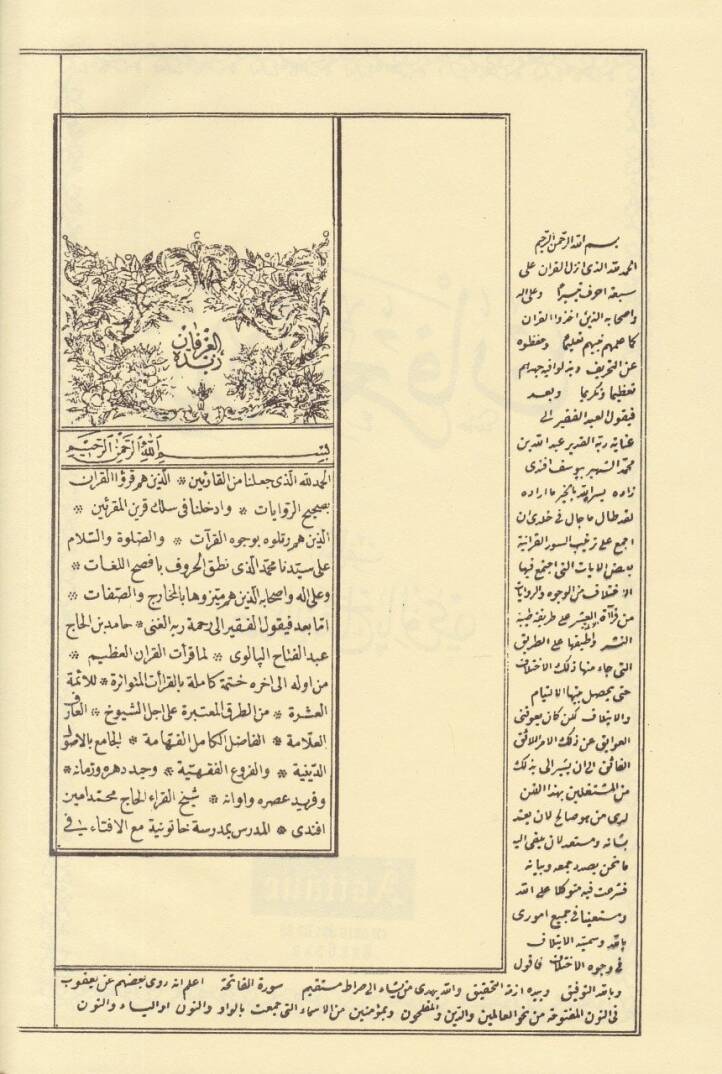 زبدة
العرفان
بسم الله الرحمن الرحيم
الحمد لله الذى جعلنا من القارئين * الذين هم قرؤا القرآن
بصحيح الروايات * وادخلنا فى سلك قرين المقرئين *
الذين هم رتلوه بوجوه القرآت * والصلوة والسلام
على سيدنا محمد الذى نطق الحروف بافصح اللغات *
وعلى اله واصحابه الذين هم ميزوها بالمخارج والصفات *
اما بعد فيقول الفقير الى رحمة ربه الغنى * حامد بن الحاج
عبد الفتاح البالوى * لما قرأت القران العظيم *
من اوله الى اخره ختمة كاملة بالقرأت المتواترة * للائمة
العشرة * من الطرق المعتبرة على اجل الشيوخ * العارف
العلامة * الفاضل الكامل الفهامة * الجامع بالاصول
الدينية * والفروع الفقهية * وحيد دهره وزمانه *
وفريد عصره واوانه * شيخ القراء الحاج محمد امين
افندى * المدرس بمدرسة خاتونية مع الافتاء فى
بسم الله الرحمن الرحيم
الحمد لله الذى انزل القران على
سبعة احرف تيسيرا وعلى اله
واصحابه الذين اخذوا القران
كما علمهم نبيهم تعليما وحفظوه
عن التحريف وبذلوا فيه جهدهم
تعظيما وتكريما وبعد
فيقول العبد الفقير الى
عناية ربه القدير عبد الله بن
محمد الشهير بيوسف افندى
زاده يسر الله بالخير ما اراده
لقد طال ما جال فى خلدى ان
اجمع على ترتيب السور القرانية
بعض الايات التى اجتمع فيها
الاختلاف من الوجوه والروايات
من قراآة العشر على طريقة طيبة
النشر واطبقها على الطريق
التى جاء منها ذلك الاختلاف
حتى يحصل بينها الالتيام
والايتلاف لكن كان يعوقنى
العوايق عن ذلك الامر اللائق
الفائق الى ان يشير الى بذلك
من المشتغلين بهذا الفن
لدى من هو صالح لان يعتد
بشانه ومستعد لان يلقى اليه
ما نحن بصدد جمعه وبيانه
فشرعت فيه متوكلا على الله
ومستعينا فى جميع امورى
بالله وسميته الايتلاف
فى وجوه الاختلاف فاقول
وبالله التوفيق وبيده ازمة التحقيق والله يهدى من يشاء الى صراط مستقيم سورة الفاتحة اعلم انه روى بعضهم عن يعقوب
فى النون المفتوحة من نحو العالمين والذين والمفلحون وبمؤمنين من الاسماء التى جمعت بالواو والنون او الياء والنون